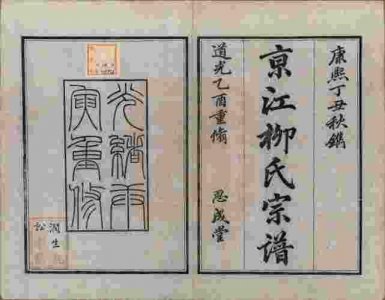 康熙丁丑秋鐫
京江柳氏宗譜
道光乙酉重脩
思成堂
光緒庚
寅重修
潤生